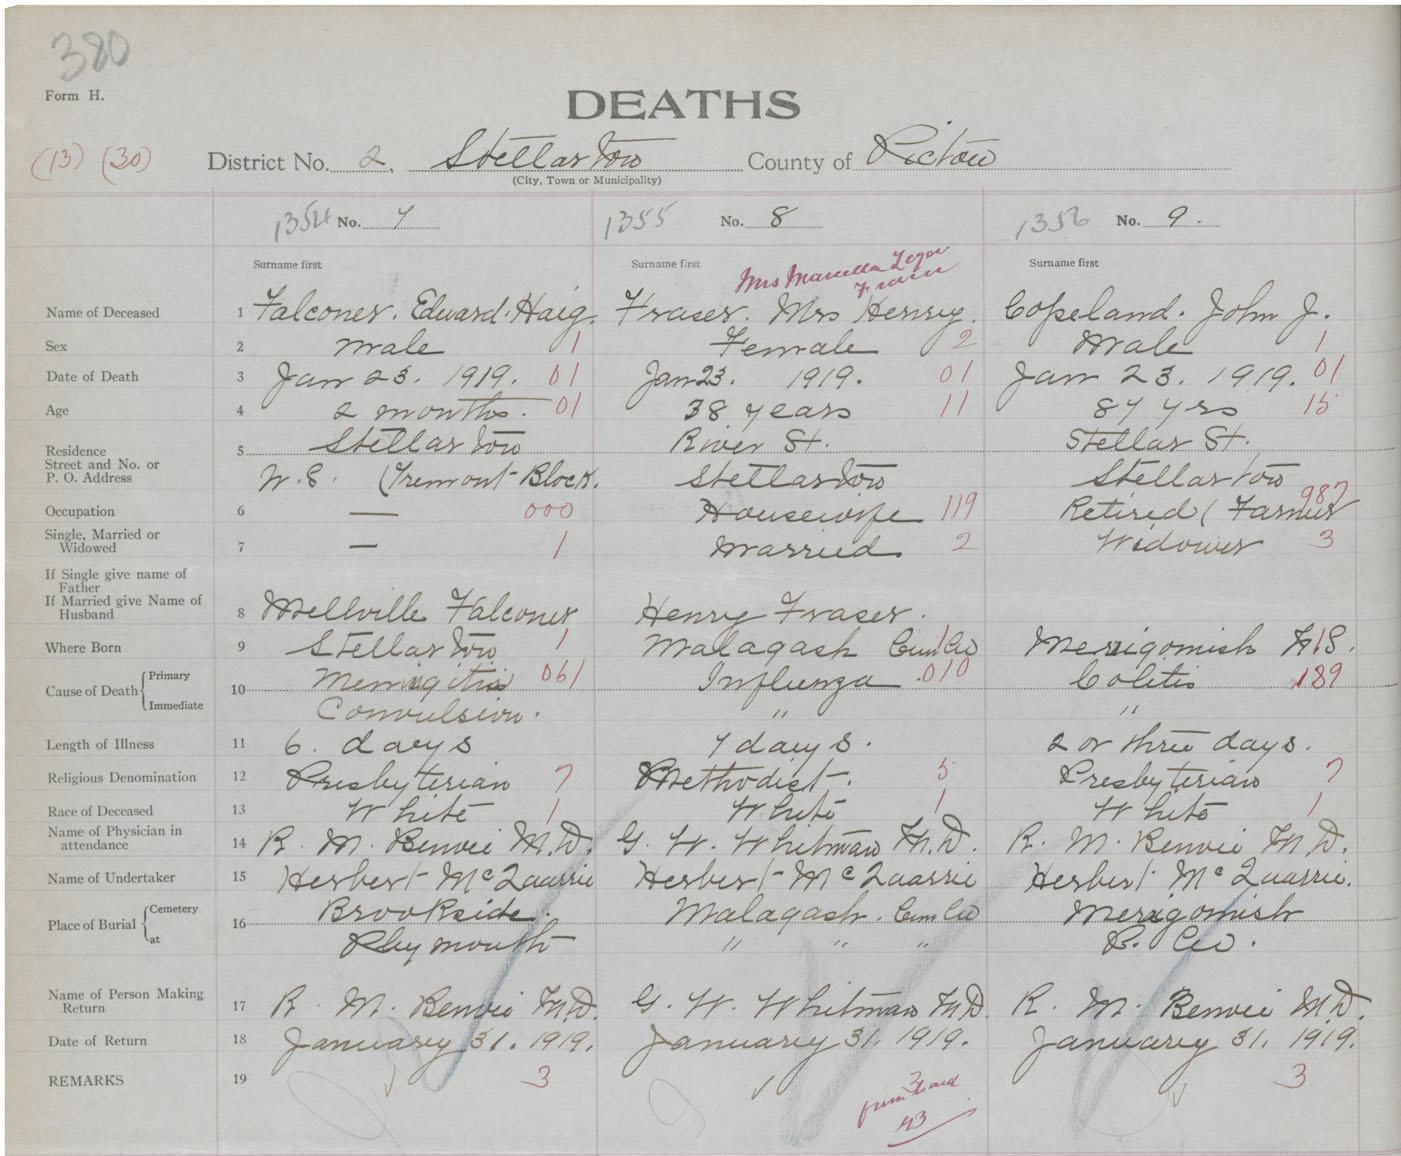 380
Form H.
DEATHS
(13) (30) District No. 2, Stellarton County of Pictou
(City, Town or Municipality)
1354 No. 7 1355 No. 8 1356 No. 9.
Surname first Surname first Surname first
Mrs Marcella
Fraser
Name of Deceased 1 Falconer. Edward. Haig. Fraser. Mrs Henry. Copeland. John J.
Sex 2 male 1 Female 2 Male 1
Date of Death 3 Jan 23. 1919. 01 Jan 23. 1919. 01 Jan 23. 1919. 01
Age 4 2 months. 01 38 years 11 87 yrs 15
Residence 5 Stellarton River St. Stellar St.
Street and No. or
P. O. Address N.S. (Tremont Block. Stellarton Stellarton
Occupation 6 — 000 Housewife 119 Retired (Farmer 987
Single, Married or
Widowed 7 — 1 Married 2 Widower 3
If Single give name of
Father
If Married give Name of
Husband 8 Mellville Falconer Henry Fraser.
Where Born 9 Stellarton 1 Malagash Cum Co 1 Merigomish N.S. 1
Cause of Death { Primary 10 Meningitis 061 Influenza .010 Colitis 189
Immediate Convulsion. " "
Length of Illness 11 6. days 7 days. 2 or three days.
Religious Denomination 12 Presbyterian 7 Methodist. 5 Presbyterian 7
Race of Deceased 13 White 1 White 1 White 1
Name of Physician in
attendance 14 R. M. Benvie M.D. G. W. Whitman M.D. R. M. Benvie M.D.
Name of Undertaker 15 Herbert McQuarrie Herbert McQuarrie Herbert McQuarrie.
Place of Burial { Cemetery 16 Brookside. Malagash. Cum Co Merigomish
at Plymouth " " " P. Co.
Name of Person Making
Return 17 R. M. Benvie M.D. G. W. Whitman M.D. R. M. Benvie M.D.
Date of Return 18 January 31. 1919. January 31. 1919. January 31. 1919.
REMARKS 19 3 3 3
from